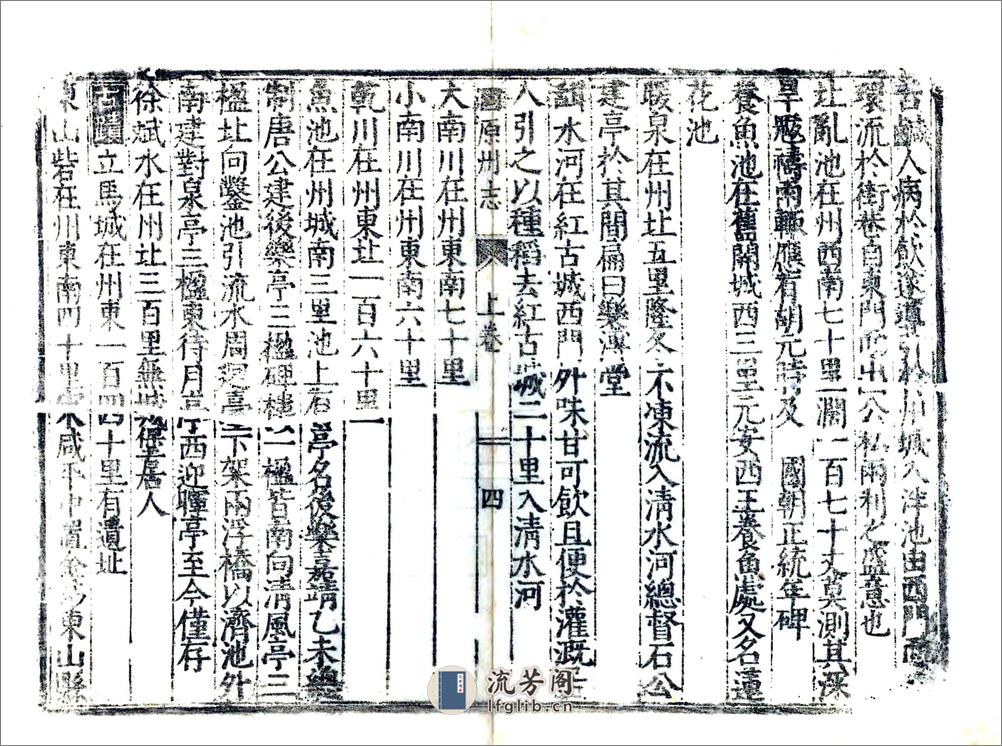 苦鹹人病於飲遂導引於州城入泮池由西門而
環流於街巷自東門而出公私兩利之盛意也
北亂池在州西南七十里濶一百七十丈莫測其深
旱魃禱雨輒應有胡元時及　國朝正統年碑
養魚池在舊開城西三里元安西王養魚處又名蓮
花池
暖泉在州北五里隆冬不凍流入清水河總督石公
建亭於其間扁曰樂溥堂
鎮水河在紅古城西門外味甘可飲且便於灌溉居
人引之以種稻去紅古城二十里入清水河
固原州志　上卷　四
大南川在州東南七十里
小南川在州東南六十里
乾川在州東北一百六十里
魚池在州城南三里池上有亭名後樂嘉靖乙未總
制唐公建後樂亭三楹碑樓一楹皆南向清風亭三
楹北向鑿池引流水周迴亭下架兩浮橋以濟池外
南建對泉亭三楹東待月亭西迎暉亭至今僅存
徐斌水在州北三百里無城堡居人
古蹟立馬城在州東一百四十里有遺址
東山砦在州東南四十里宋咸平中置金為東山縣
流芳阁
lfglib.cn